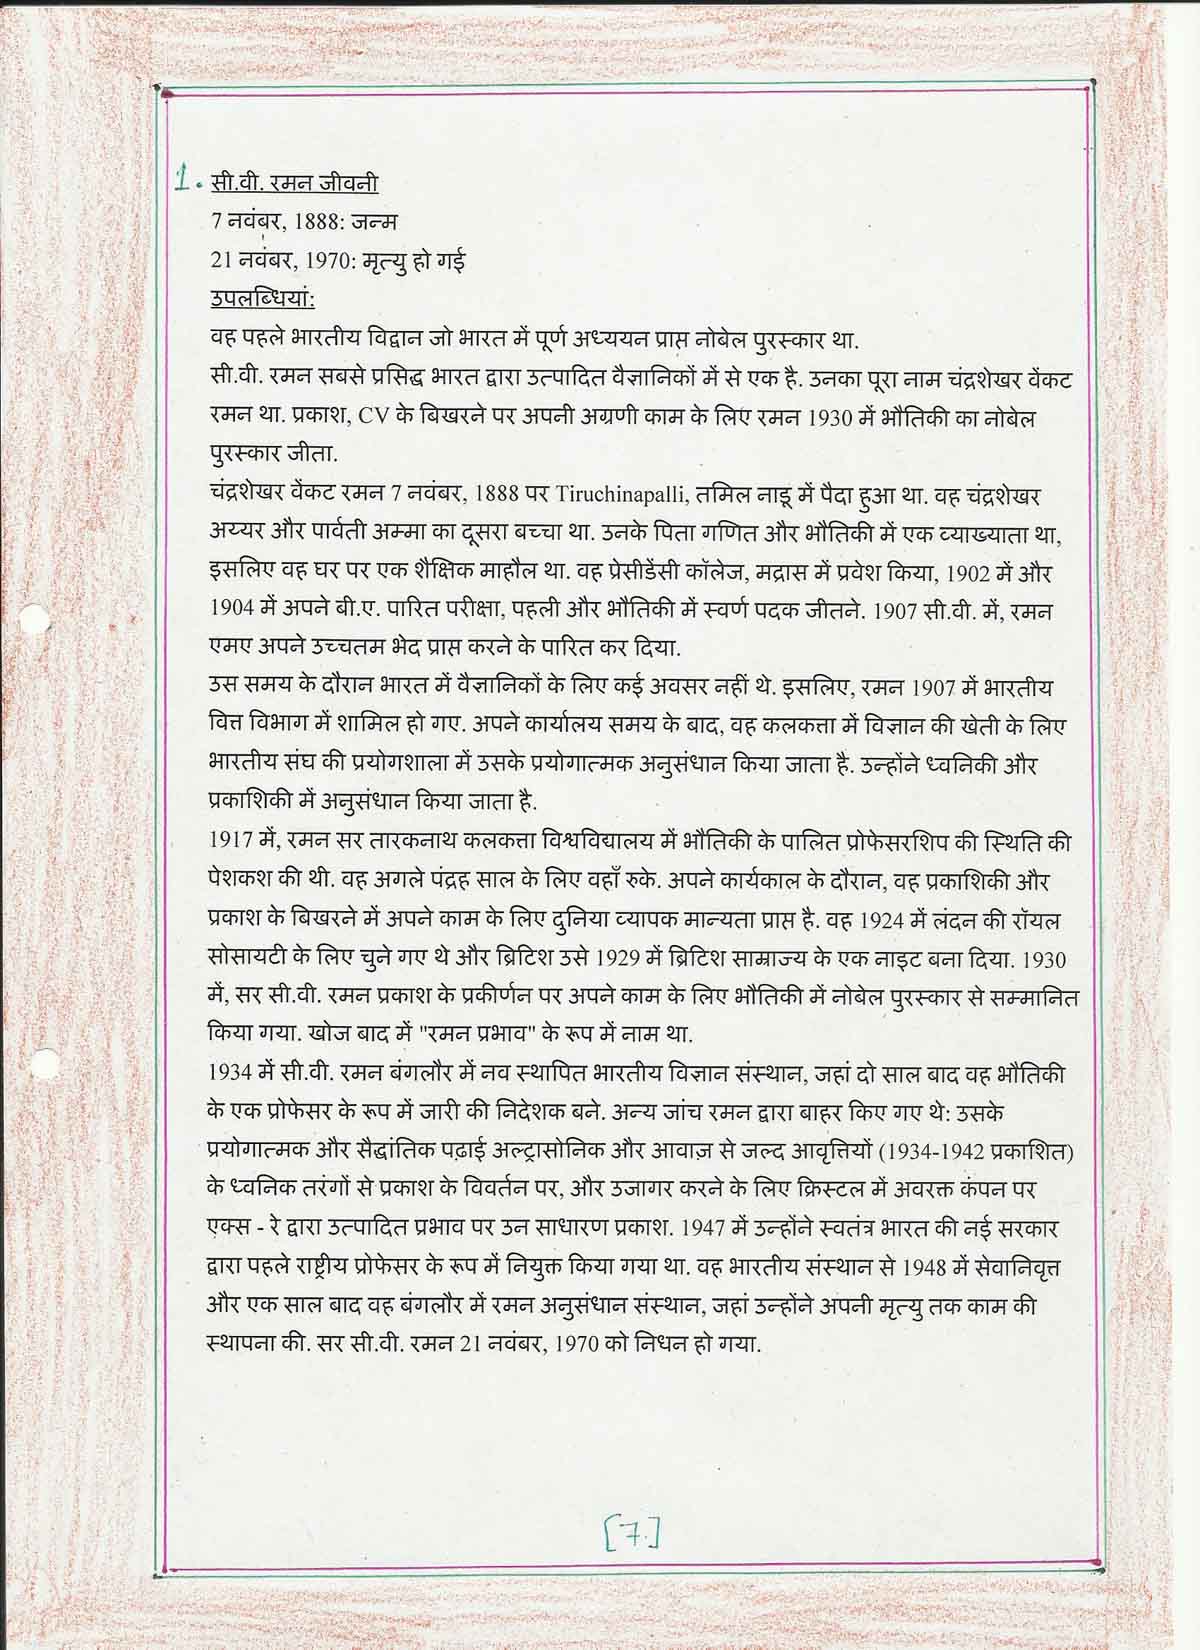 1. सी.वी. रमन जीवनी
7 नवंबर, 1888: जन्म
21 नवंबर, 1970: मृत्यु हो गई
उपलब्धियां:
वह पहले भारतीय विद्वान जो भारत में पूर्ण अध्ययन प्राप्त नोबेल पुरस्कार था.
सी.वी. रमन सबसे प्रसिद्ध भारत द्वारा उत्पादित वैज्ञानिकों में से एक है. उनका पूरा नाम चंद्रशेखर वेंकट
रमन था. प्रकाश, CV के बिखरने पर अपनी अग्रणी काम के लिए रमन 1930 में भौतिकी का नोबेल
पुरस्कार जीता.
चंद्रशेखर वेंकट रमन 7 नवंबर, 1888 पर Tiruchinapalli, तमिल नाडू में पैदा हुआ था. वह चंद्रशेखर
अय्यर और पार्वती अम्मा का दूसरा बच्चा था. उनके पिता गणित और भौतिकी में एक व्याख्याता था,
इसलिए वह घर पर एक शैक्षिक माहौल था. वह प्रेसीडेंसी कॉलेज, मद्रास में प्रवेश किया, 1902 में और
1904 में अपने बी.ए. पारित परीक्षा, पहली और भौतिकी में स्वर्ण पदक जीतने. 1907 सी.वी. में, रमन
एमए अपने उच्चतम भेद प्राप्त करने के पारित कर दिया.
उस समय के दौरान भारत में वैज्ञानिकों के लिए कई अवसर नहीं थे. इसलिए, रमन 1907 में भारतीय
वित्त विभाग में शामिल हो गए. अपने कार्यालय समय के बाद, वह कलकत्ता में विज्ञान की खेती के लिए
भारतीय संघ की प्रयोगशाला में उसके प्रयोगात्मक अनुसंधान किया जाता है. उन्होंने ध्वनिकी और
प्रकाशिकी में अनुसंधान किया जाता है.
1917 में, रमन सर तारकनाथ कलकत्ता विश्वविद्यालय में भौतिकी के पालित प्रोफेसरशिप की स्थिति की
पेशकश की थी. वह अगले पंद्रह साल के लिए वहाँ रुके. अपने कार्यकाल के दौरान, वह प्रकाशिकी और
प्रकाश के बिखरने में अपने काम के लिए दुनिया व्यापक मान्यता प्राप्त है. वह 1924 में लंदन की रॉयल
सोसायटी के लिए चुने गए थे और ब्रिटिश उसे 1929 में ब्रिटिश साम्राज्य के एक नाइट बना दिया. 1930
में, सर सी.वी. रमन प्रकाश के प्रकीर्णन पर अपने काम के लिए भौतिकी में नोबेल पुरस्कार से सम्मानित
किया गया. खोज बाद में "रमन प्रभाव" के रूप में नाम था.
1934 में सी.वी. रमन बंगलौर में नव स्थापित भारतीय विज्ञान संस्थान, जहां दो साल बाद वह भौतिकी
के एक प्रोफेसर के रूप में जारी की निदेशक बने. अन्य जांच रमन द्वारा बाहर किए गए थे: उसके
प्रयोगात्मक और सैद्धांतिक पढ़ाई अल्ट्रासोनिक और आवाज़ से जल्द आवृत्तियों (1934-1942 प्रकाशित)
के ध्वनिक तरंगों से प्रकाश के विवर्तन पर, और उजागर करने के लिए क्रिस्टल में अवरक्त कंपन पर
एक्स - रे द्वारा उत्पादित प्रभाव पर उन साधारण प्रकाश. 1947 में उन्होंने स्वतंत्र भारत की नई सरकार
द्वारा पहले राष्ट्रीय प्रोफेसर के रूप में नियुक्त किया गया था. वह भारतीय संस्थान से 1948 में सेवानिवृत्त
और एक साल बाद वह बंगलौर में रमन अनुसंधान संस्थान, जहां उन्होंने अपनी मृत्यु तक काम की
स्थापना की. सर सी.वी. रमन 21 नवंबर, 1970 को निधन हो गया.
[7.]